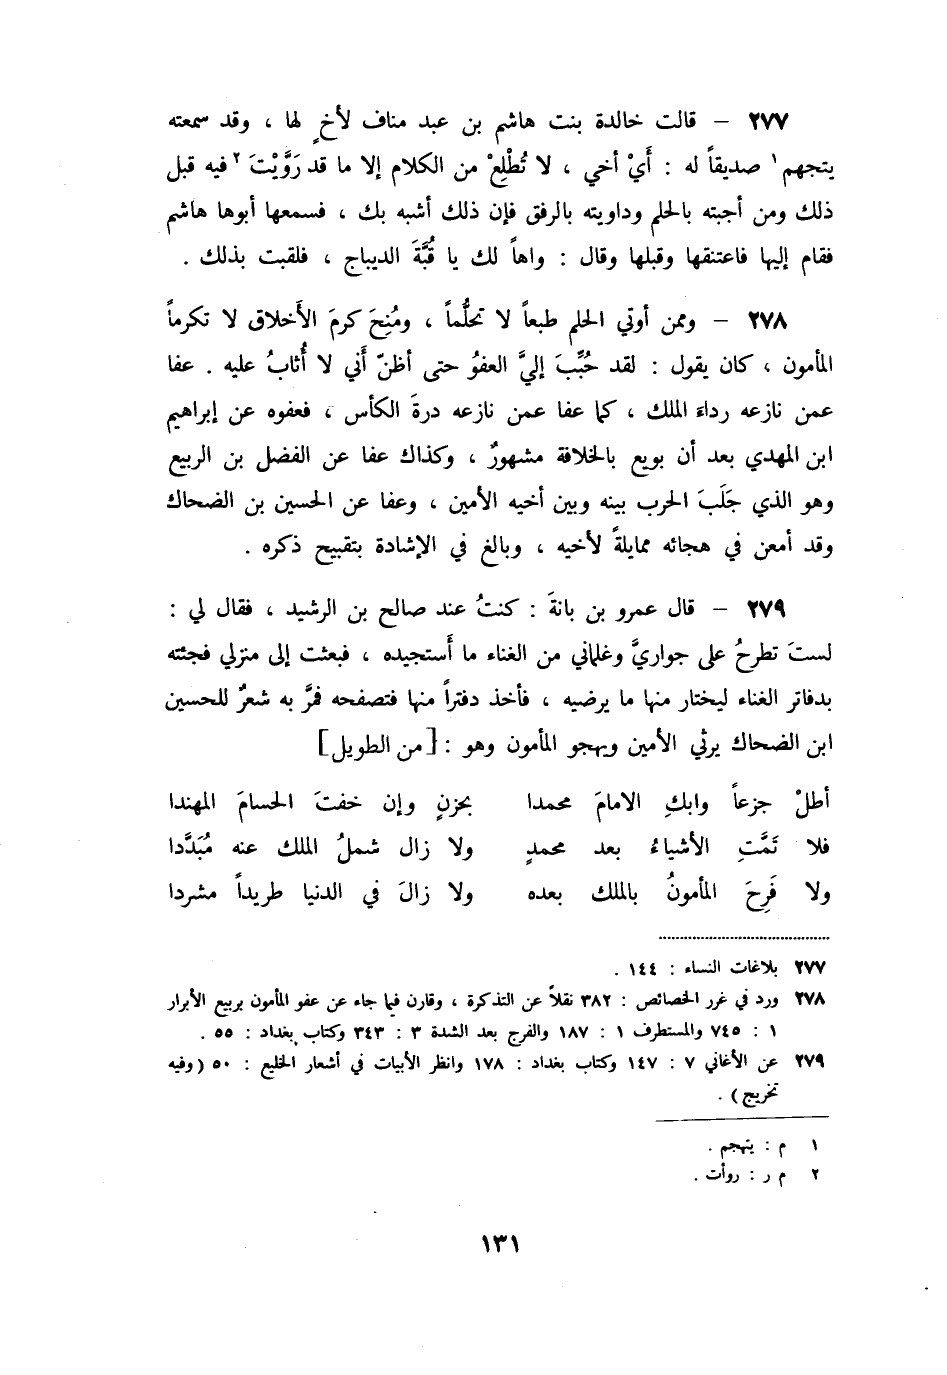 ٢٧٧ – قالت خالدة بنت هاشم بن عبد مناف لأخٍ لها ، وقد سمعته
يتجهم١ صديقاً له : أَيْ أخي ، لا تُطْلِعْ من الكلام إلا ما قد رَوَّيْتَ٢ فيه قبل
ذلك ومن أجبته بالحلم وداويته بالرفق فإن ذلك أشبه بك ، فسمعها أبوها هاشم
فقام إليها فاعتنقها وقبلها وقال : واهاً لك يا قُبَّةَ الديباج ، فلقبت بذلك .
٢٧٨ – وممن أوتي الحلم طبعاً لا تحلُّماً ، ومُنِحَ كرمَ الأَخلاق لا تكرماً
المأمون ، كان يقول : لقد حُبِّبَ إليَّ العفوُ حتى أظنّ أَني لا أُثابُ عليه . عفا
عمن نازعه رداءَ الملك ، كما عفا عمن نازعه درةَ الكأس ، فعفوه عن إبراهيم
ابن المهدي بعد أن بويع بالخلافة مشهورٌ ، وكذاك عفا عن الفضل بن الربيع
وهو الذي جَلَبَ الحرب بينه وبين أخيه الأمين ، وعفا عن الحسين بن الضحاك
وقد أمعن في هجائه ممايلةً لأخيه ، وبالغ في الإشادة بتقبيح ذكره .
٢٧٩ – قال عمرو بن بانةَ : كنتُ عند صالح بن الرشيد ، فقال لي :
لستَ تطرحُ على جواريَّ وغلماني من الغناء ما أَستجيده ، فبعثت إلى منزلي فجئته
بدفاتر الغناء ليختار منها ما يرضيه ، فأخذ دفتراً منها فتصفحه فمرَّ به شعرٌ للحسين
ابن الضحاك يرثي الأمين ويهجو المأمون وهو : [من الطويل]
أطلْ جزعاً وابكِ الامامَ محمدا بحزنٍ وإن خفتَ الحسامَ المهندا
فلا تَمَّتِ الأشياءُ بعد محمدٍ ولا زال شملُ الملك عنه مُبَدَّدا
ولا فَرِحَ المأمونُ بالملك بعده ولا زالَ في الدنيا طريداً مشردا
٢٧٧ بلاغات النساء : ١٤٤ .
٢٧٨ ورد في غرر الخصائص : ٣٨٢ نقلاً عن التذكرة ، وقارن فيما جاء عن عفو المأمون بربيع الأبرار
١ : ٧٤٥ والمستطرف ١ : ١٨٧ والفرج بعد الشدة ٣ : ٣٤٣ وكتاب بغداد : ٥٥ .
٢٧٩ عن الأغاني ٧ : ١٤٧ وكتاب بغداد : ١٧٨ وانظر الأبيات في أشعار الخليع : ٥٠ (وفيه
تخريج) .
١ م : يتهجم .
٢ م ر : روأت .
١٣١